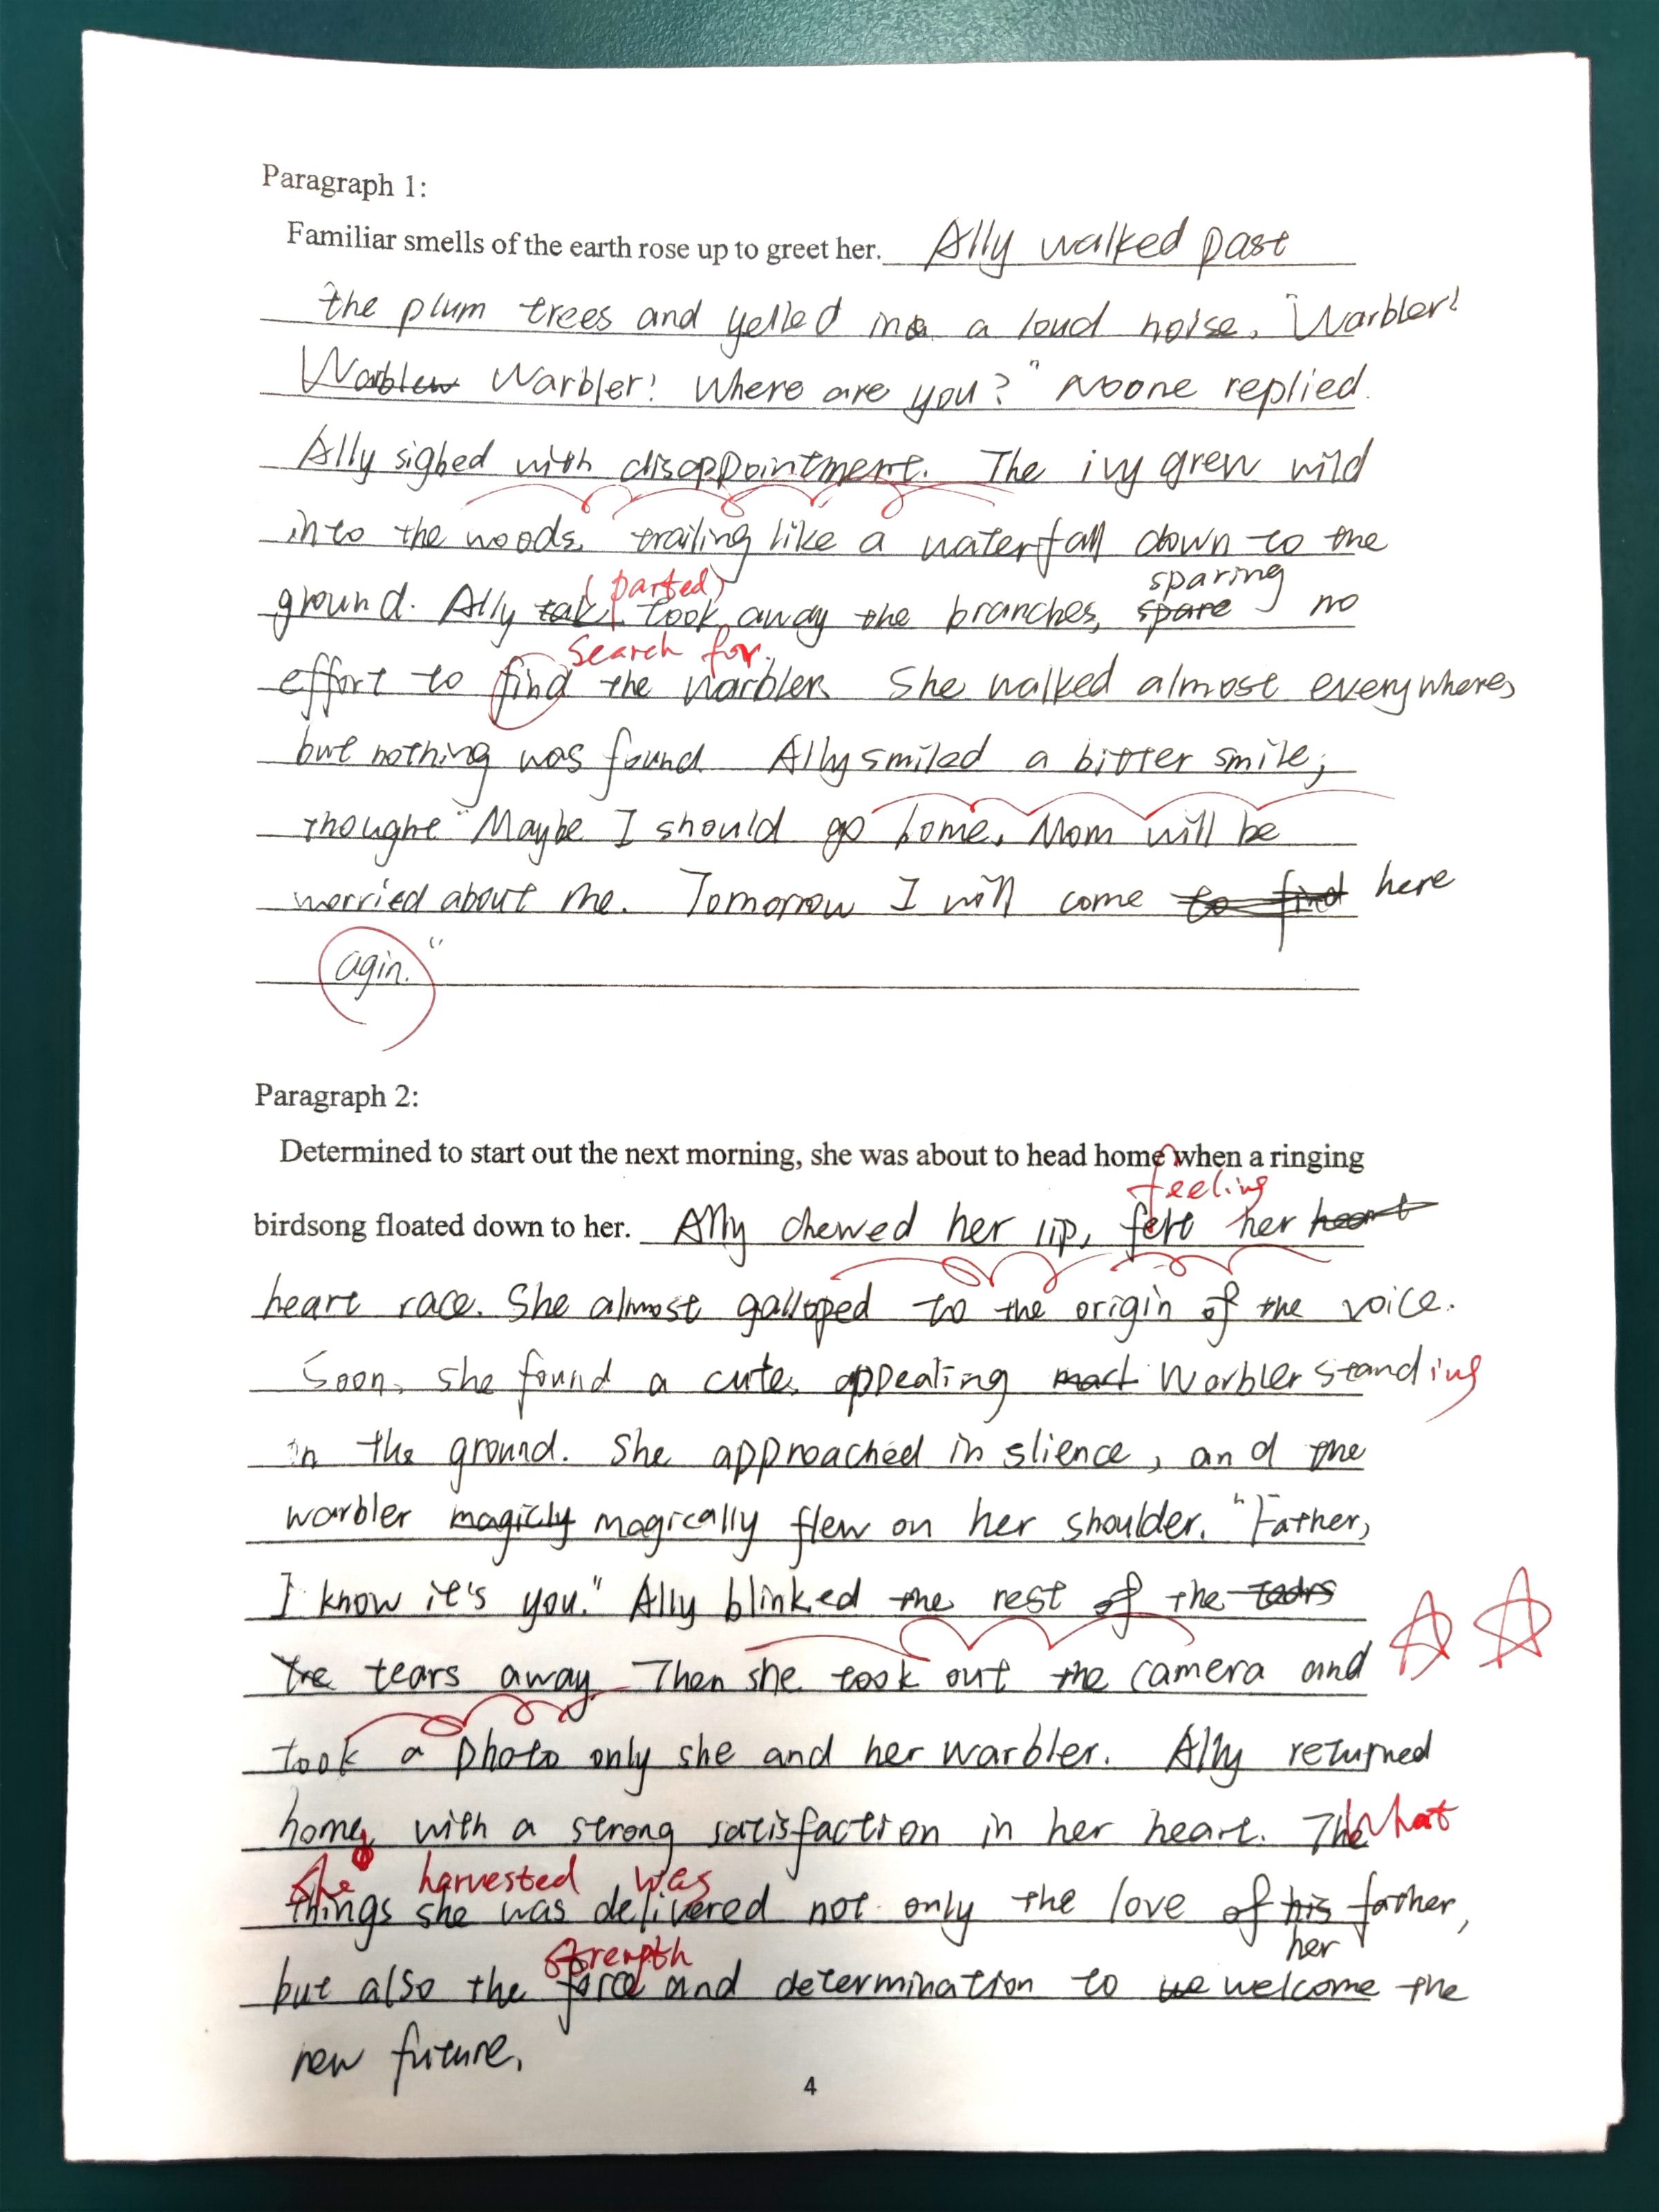 Paragraph 1:
Familiar smells of the earth rose up to greet her. Ally walked past
the plum trees and yelled in a loud noise, "Warbler!
Warbler! Where are you?" Noone replied.
Ally sighed with disappointment. The ivy grew wild
into the woods, trailing like a waterfall down to the
(parted) sparing
ground. Ally took away the branches, spare no
search for
effort to find the warbler. She walked almost everywhere,
but nothing was found. Ally smiled a bitter smile,
thought "Maybe I should go home, Mom will be
worried about me. Tomorrow I will come to find here
agin."
Paragraph 2:
Determined to start out the next morning, she was about to head home when a ringing
feeling
birdsong floated down to her. Ally chewed her lip, felt her heart
heart race. She almost galloped to the origin of the voice.
Soon, she found a cute, appealing Warbler standing
in the ground. She approached in slience, and the
warbler magicly magically flew on her shoulder. "Father,
I know it's you." Ally blinked the rest of the tears
tears away. Then she took out the camera and
took a photo only she and her warbler. Ally returned
home, with a strong satisfaction in her heart. The What
she harvested was
things she was delivered not only the love of his father,
strength her
but also the force and determination to we welcome the
new future.
4